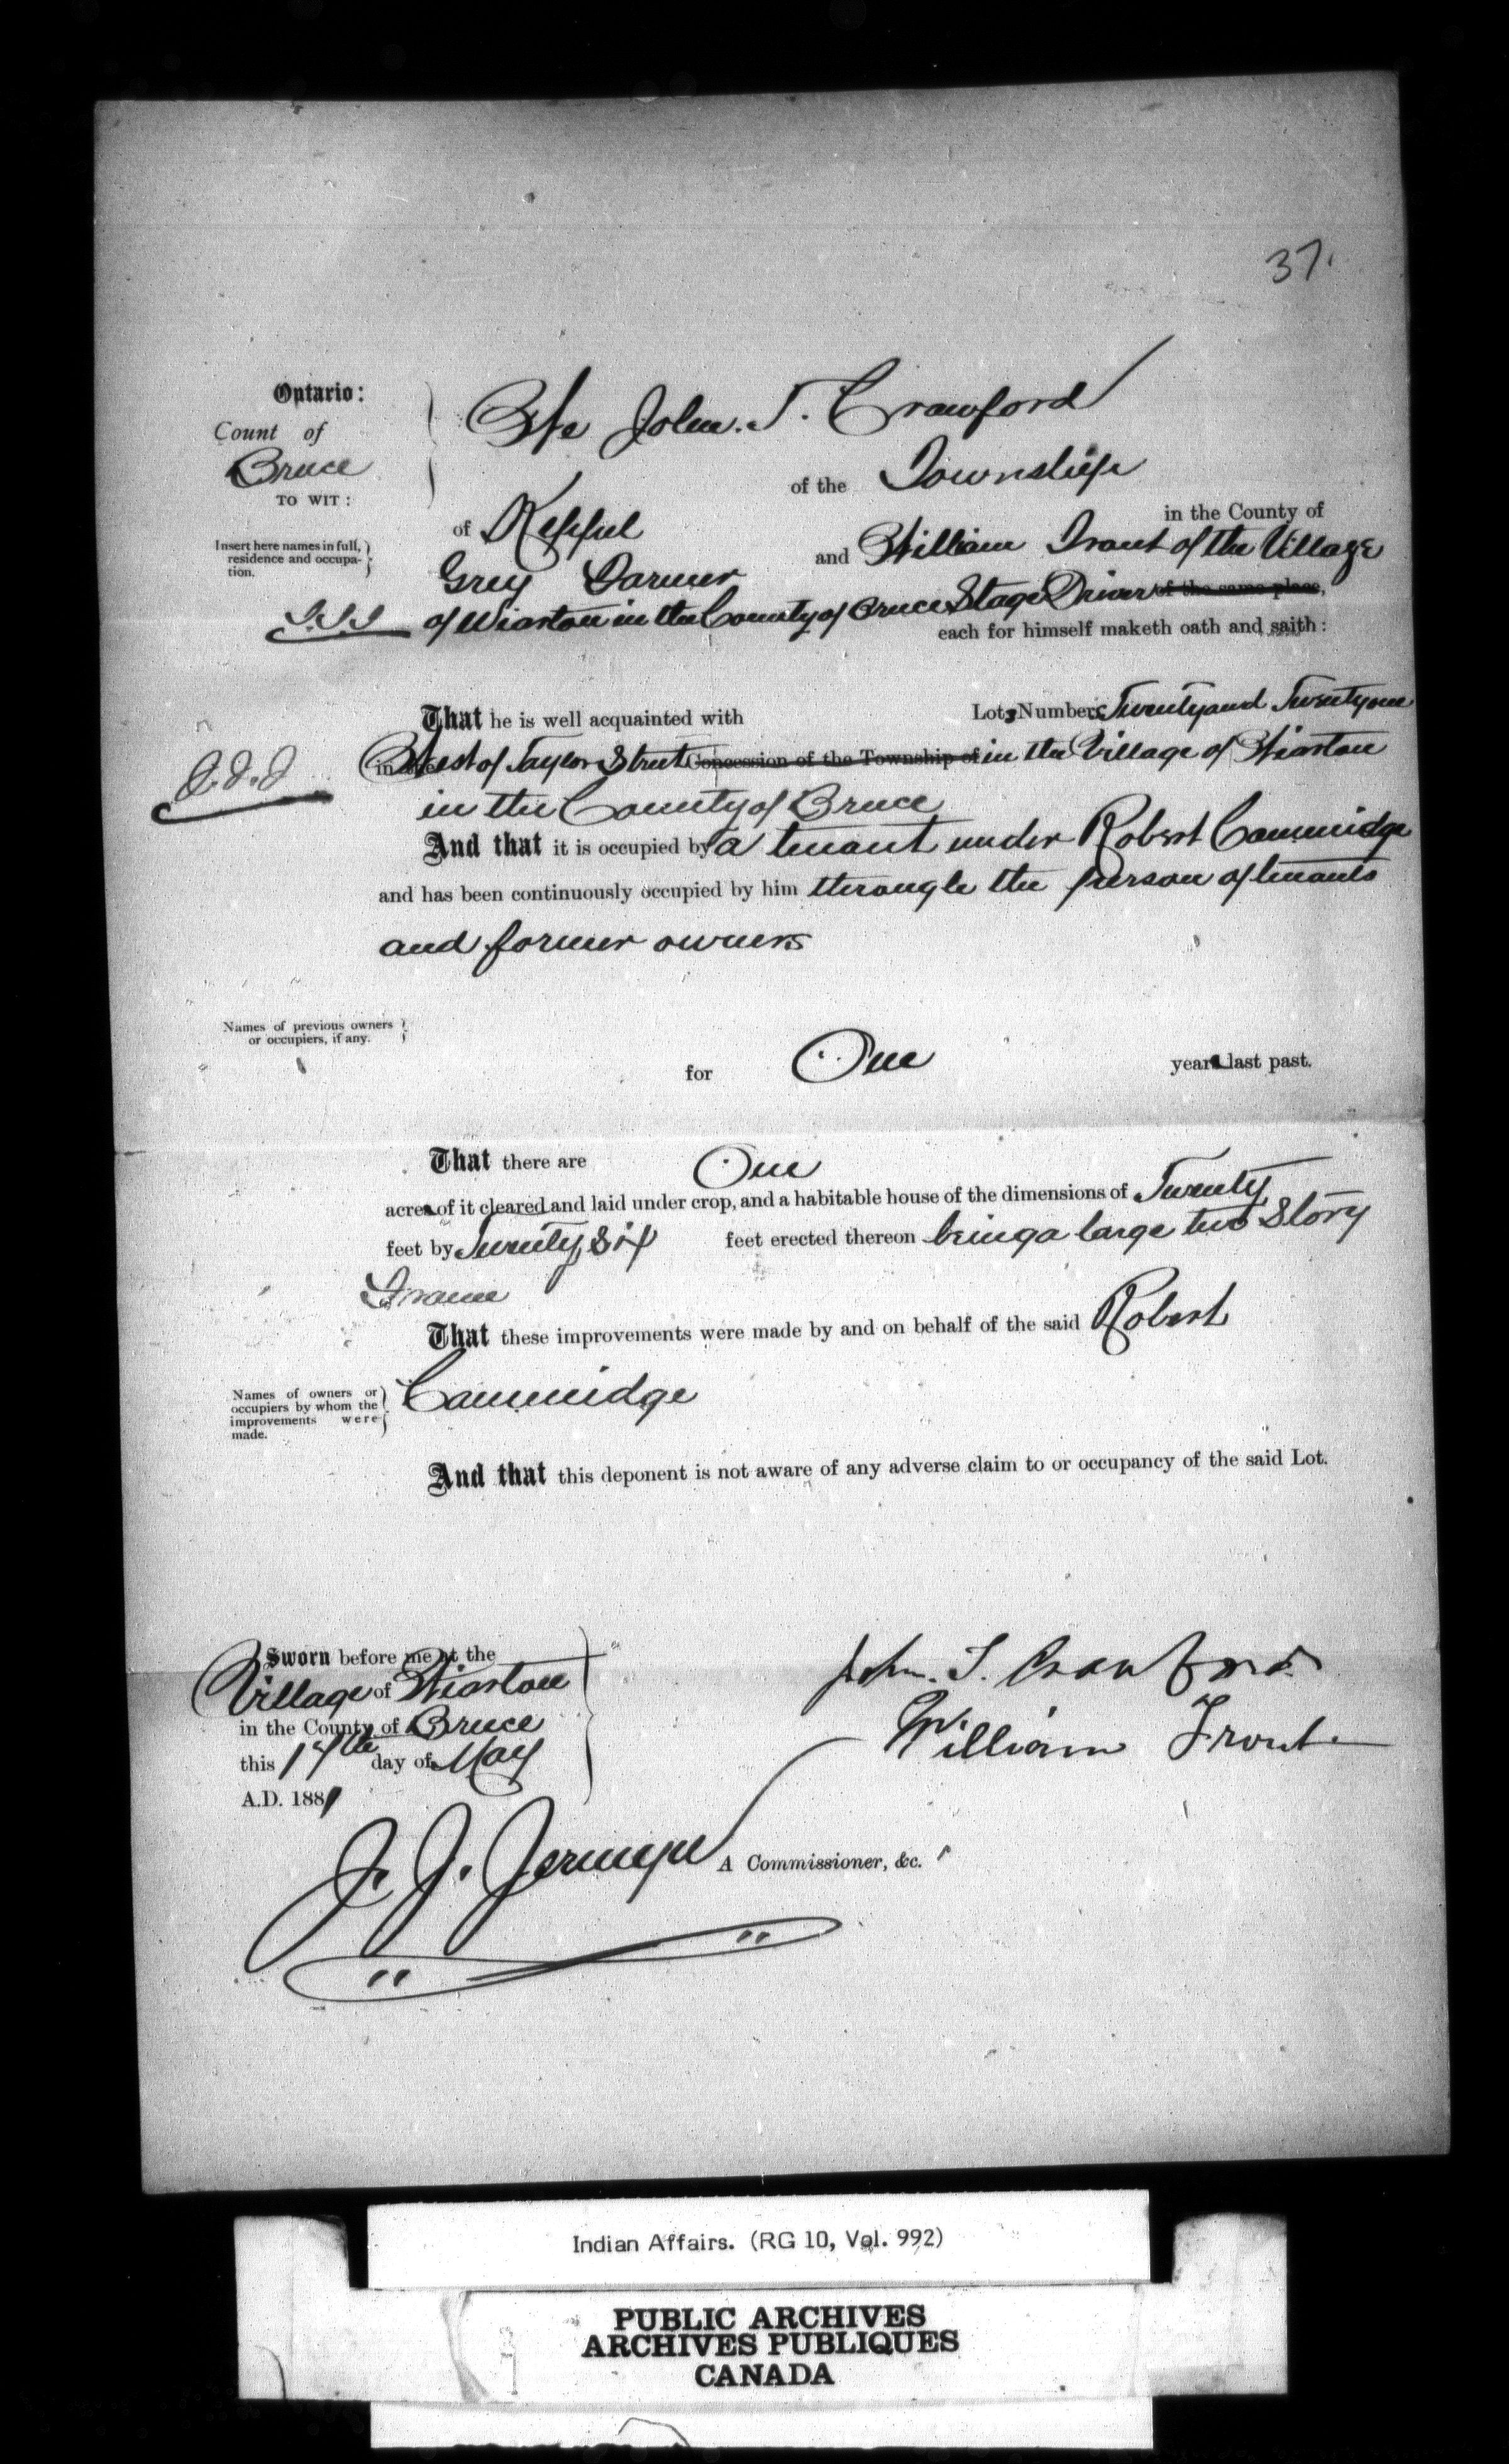 37.
Ontario:
Count of
Bruce
TO WIT:
We John. T. Crawford
of the Township
of Keppel in the County of
Insert here names in full, residence and occupation.
Grey Farmer and William Trout of the Village
J.J.J of Wiarton in the County of Bruce Stage Driver of the same place,
each for himself maketh oath and saith:
That he is well acquainted with Lots Numbers Twenty and Twenty one
J.J.J West of Taylor Street Concession of the Township of in the Village of Wiarton
in the County of Bruce
And that it is occupied by a tenant under Robert Cammidge
and has been continuously occupied by him through the person of tenants
and former owners
Names of previous owners
or occupiers, if any.
for One year last past.
That there are One
acre of it cleared and laid under crop, and a habitable house of the dimensions of Twenty
feet by Twenty Six feet erected thereon being a large two Story
Frame
That these improvements were made by and on behalf of the said Robert
Cammidge
Names of owners or
occupiers by whom the
improvements were
made.
And that this deponent is not aware of any adverse claim to or occupancy of the said Lot.
Sworn before me at the
Village of Wiarton
in the County of Bruce
this 17th day of May
A.D. 1881
John. T. Crawford
William Trout
J. J. Jermyn A Commissioner, &c.
Indian Affairs. (RG 10, Vol. 992)
PUBLIC ARCHIVES
ARCHIVES PUBLIQUES
CANADA